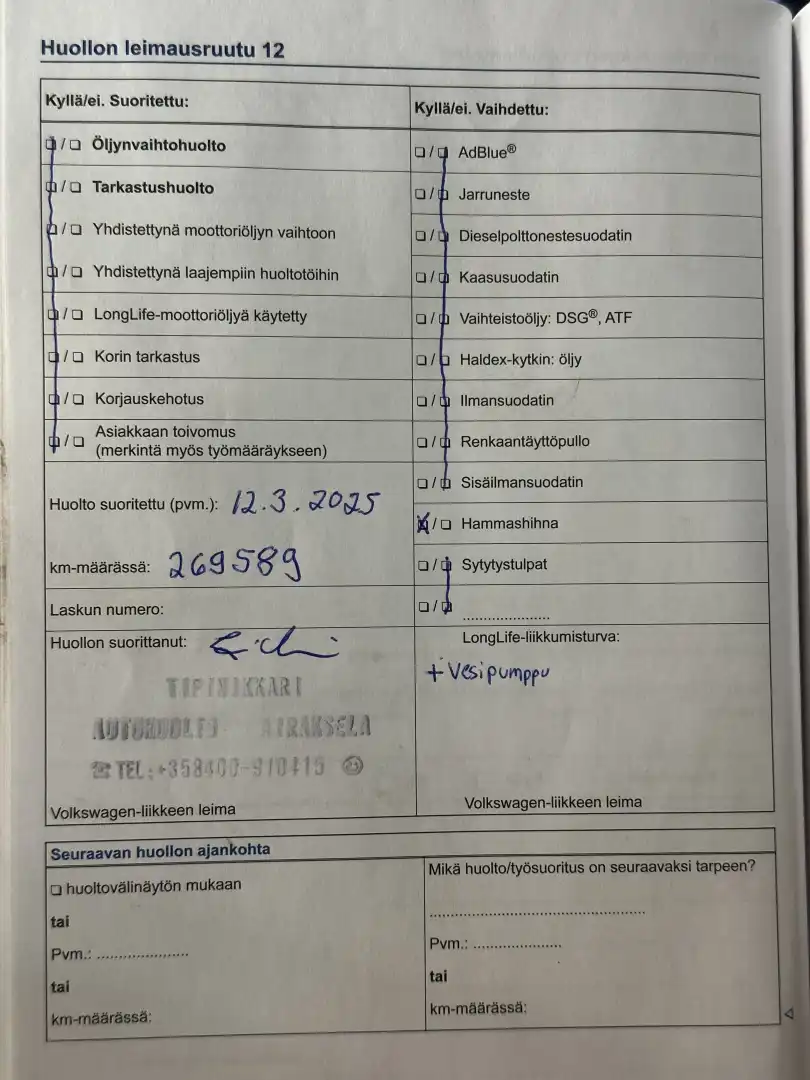 Huollon leimausruutu 12
Kyllä/ei. Suoritettu:
☐/☐ Öljynvaihtohuolto
☐/☐ Tarkastushuolto
☐/☐ Yhdistettynä moottoriöljyn vaihtoon
☐/☐ Yhdistettynä laajempiin huoltotöihin
☐/☐ LongLife-moottoriöljyä käytetty
☐/☐ Korin tarkastus
☐/☐ Korjauskehotus
☐/☐ Asiakkaan toivomus
(merkintä myös työmääräykseen)
Huolto suoritettu (pvm.): 12.3.2025
km-määrässä: 269589
Laskun numero:
Huollon suorittanut:
AUTOHUOLTO AIRAKSELA
☎ TEL:+358400-910415
Volkswagen-liikkeen leima
Kyllä/ei. Vaihdettu:
☐/☐ AdBlue®
☐/☐ Jarruneste
☐/☐ Dieselpolttonestesuodatin
☐/☐ Kaasusuodatin
☐/☐ Vaihteistoöljy: DSG®, ATF
☐/☐ Haldex-kytkin: öljy
☐/☐ Ilmansuodatin
☐/☐ Renkaantäyttöpullo
☐/☐ Sisäilmansuodatin
☒/☐ Hammashihna
☐/☐ Sytytystulpat
☐/☐ ......................
LongLife-liikkumisturva:
+ Vesipumppu
Volkswagen-liikkeen leima
Seuraavan huollon ajankohta
☐ huoltovälinäytön mukaan
tai
Pvm.: ......................
tai
km-määrässä:
Mikä huolto/työsuoritus on seuraavaksi tarpeen?
......................................................
Pvm.: ......................
tai
km-määrässä: